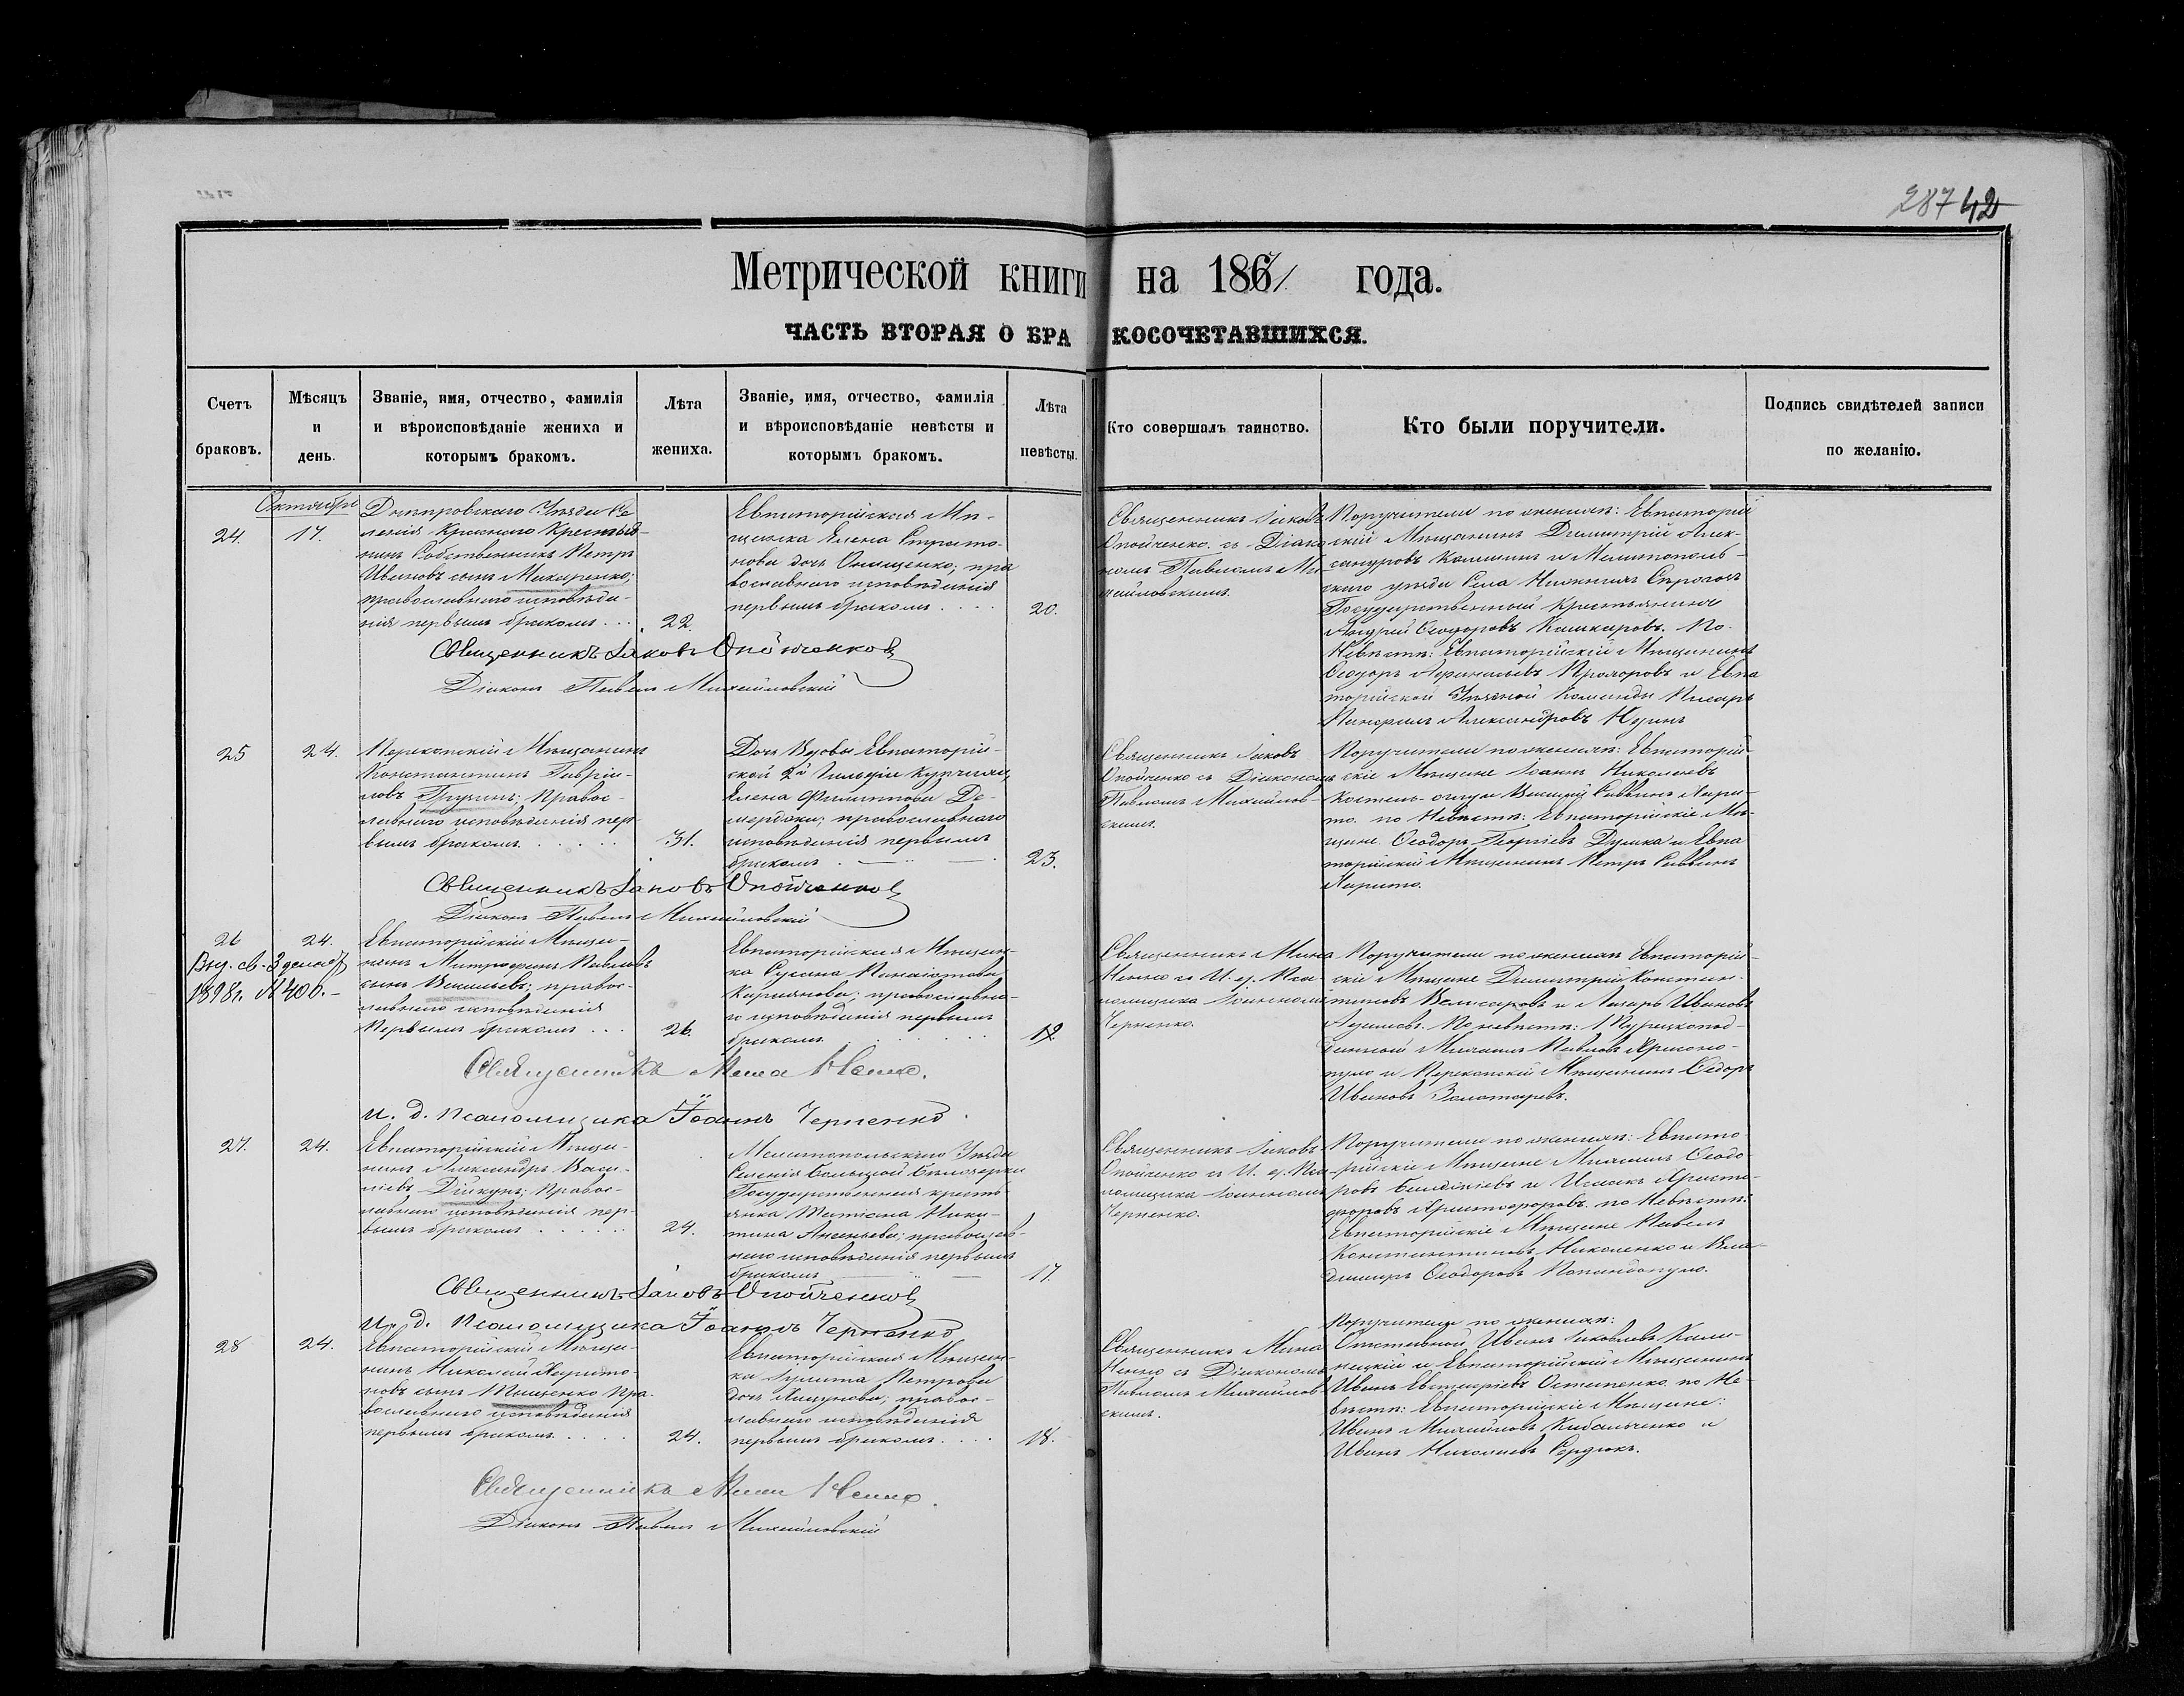 287 42
Метрической книги на 186 года.
ЧАСТЬ ВТОРАЯ О БРАКОСОЧЕТАВШИХСЯ.
Счетъ браковъ.
Мѣсяцъ и день.
Званіе, имя, отчество, фамилія и вѣроисповѣданіе жениха и которымъ бракомъ.
Лѣта жениха.
Званіе, имя, отчество, фамилія и вѣроисповѣданіе невѣсты и которымъ бракомъ.
Лѣта невѣсты.
Кто совершалъ таинство.
Кто были поручители.
Подпись свидѣтелей записи по желанію.
Октября
24.
17.
Днѣпровскаго Уѣзда Се
ленія Краснаго Крестья-
нинъ Собственникъ Петръ
Ивановъ сынъ Макаренко;
православнаго исповѣда-
нія первымъ бракомъ...
22.
Евпаторійская Мѣ-
щанка Елена Стратонова
дочь Онищенко; пра
вославнаго исповѣданія
первымъ бракомъ....
20.
Священникъ Іаковъ
Опойченко съ Діако
номъ Павломъ Ми-
хайловскимъ.
Поручители по женихѣ: Евпаторій
скій Мѣщанинъ Димитрій Алек-
сандровъ и Мелитополь-
скаго уѣзда Села Нижнихъ Сѣрогозъ
Государственный крестьянинъ
Андрей Ѳеодоровъ Кашкаровъ. По
Невѣстѣ: Евпаторійскіе Мѣщанинъ
Ѳеодоръ Прохоровъ и Евпа
торійской Уѣздной Команды Писарь
Александровъ
Священникъ Іаковъ Опойченковъ
Діаконъ Павелъ Михайловскій
25
24.
Перекопскій Мѣщанинъ
Константинъ Гавріи-
ловъ Грузинъ; Правос-
лавнаго исповѣданія пер-
вымъ бракомъ.....
31.
Дочь Вдовы Евпаторій-
ской 2й Гильдіи Купчихи
Елена Филиппова Де-
мерджи; православнаго
исповѣданія первымъ
бракомъ
23.
Священникъ Іаковъ
Опойченко съ Діакономъ
Павломъ Михайлов-
скимъ.
Поручители по женихѣ: Евпаторій-
скіе Мѣщане Іоаннъ Николаевъ
Саввинъ Хари-
то. по Невѣстѣ: Евпаторійскіе Мѣ-
щане. Ѳеодоръ Георгіевъ и Евпа
торійскій Мѣщанинъ Петръ Саввинъ
Харито.
Священникъ Іаковъ Опойченковъ
Діаконъ Павелъ Михайловскій
26
24.
Выд. св. 3 декабр
1898г. № 400.-
Евпаторійскій Мѣща-
нинъ Митрофанъ Павловъ
сынъ Васильевъ; правос-
лавнаго исповѣданія
Первымъ бракомъ...
26.
Евпаторійская Мѣщан-
ка Сусана Панаіотова
Кирьянова; православна-
го исповѣданія первымъ
бракомъ.
19
Священникъ Мина
Ненно и И. д. Пса
ломщика Іоанномъ
Черненко.
Поручители по женихѣ Евпаторій-
скіе Мѣщане Димитрій Констан-
тиновъ и Лазарь Ивановъ
По невѣстѣ: Турецкопод-
данный Михаилъ Павловъ
и Перекопскій Мѣщанинъ Ѳедоръ
Ивановъ Золотаревъ.
Священникъ Мина Ненно.
и. д. псаломщика Іоаннъ Черненко.
27.
24.
Евпаторійскій Мѣща-
нинъ Александръ Васи-
ліевъ Дикунъ; Правос-
лавнаго исповѣданія пер-
вымъ бракомъ......
24.
Мелитопольскаго Уѣзда
Селенія Большой Бѣлозерки
Государственная кресть-
янка Татіана Ники-
тина Ананьева; православ-
наго исповѣданія первымъ
бракомъ
17.
Священникъ Іаковъ
Опойченко и И. д. Пса
ломщика Іоанномъ
Черненко.
Поручители по женихѣ: Евпато
рійскіе Мѣщане Михаилъ Ѳеодо-
ровъ и Исаакъ Христо-
форовъ Христофоровъ. по Невѣстѣ:
Евпаторійскіе Мѣщане Павелъ
Константиновъ Николенко и Вла-
диміръ Ѳеодоровъ Попандопуло.
Священникъ Іаковъ Опойченковъ
И. д. Псаломщика Іоаннъ Черненко
28
24.
Евпаторійскій Мѣща-
нинъ Николай Харито-
новъ сынъ Тищенко Пра-
вославнаго исповѣданія
первымъ бракомъ.....
24.
Евпаторійская Мѣщан-
ка Іулита Петрова
дочь правос-
лавнаго исповѣданія
первымъ бракомъ....
18.
Священникъ Мина
Ненно съ Діакономъ
Павломъ Михайлов
скимъ.
Поручители по женихѣ:
Отставной Иванъ Іаковлевъ Ками-
нецкій и Евпаторійскій Мѣщанинъ
Иванъ Евстафіевъ Остапенко. по Не-
вѣстѣ: Евпаторійскіе Мѣщане:
Иванъ Михайловъ Кибальченко и
Иванъ Николаевъ Сердюкъ.
Священникъ Мина Ненно.
Діаконъ Павелъ Михайловскій